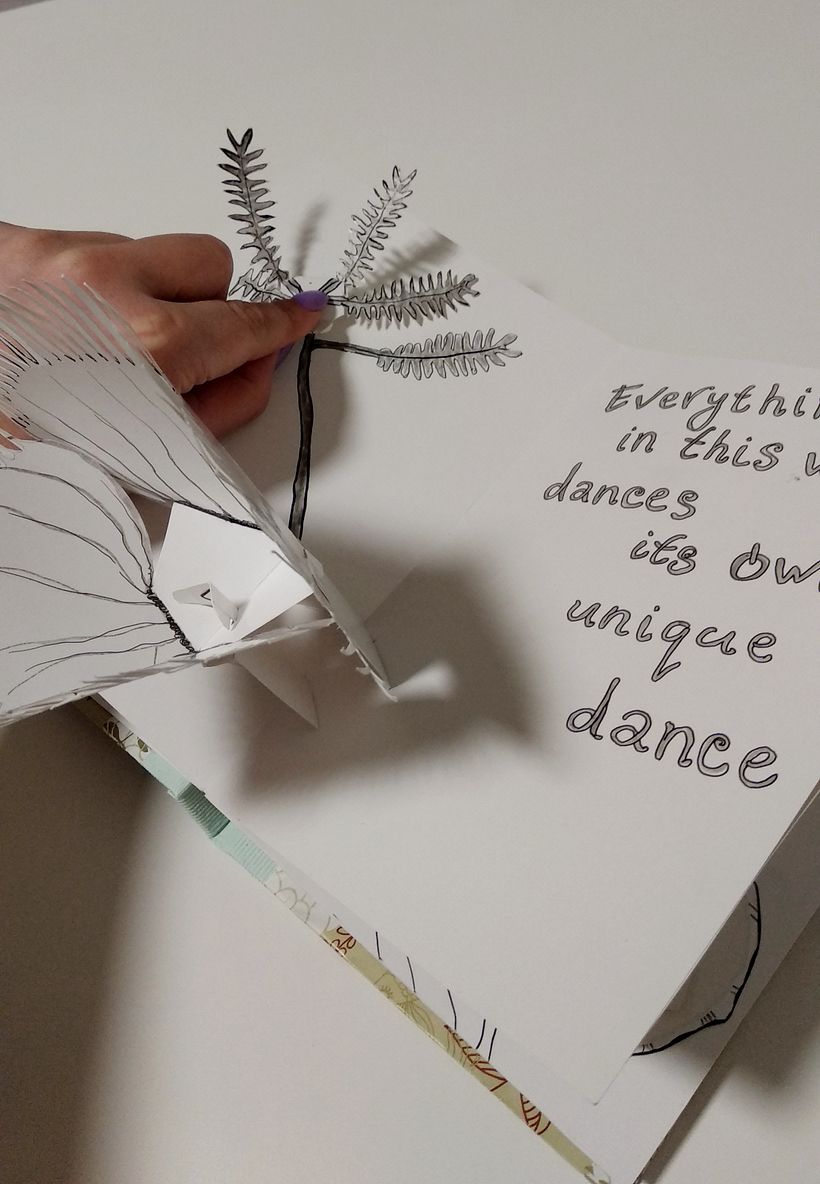 Everythi
in this
dances
its ow
unique
dance